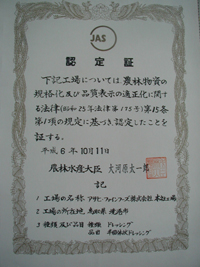 JAS
認定証
下記工場については農林物資の
規格化及び品質表示の適正化に関
する法律(昭和25年法律第175号)第15条
第1項の規定に基づき認定したことを
証する。
平成6年10月11日
農林水産大臣 大河原太一郎
記
1 工場の名称 アサヒファインフーズ株式会社 本社工場
2 工場の所在地 鳥取県境港市
3 種類及び品目 種類 ドレッシング
品目 半固体状ドレッシング